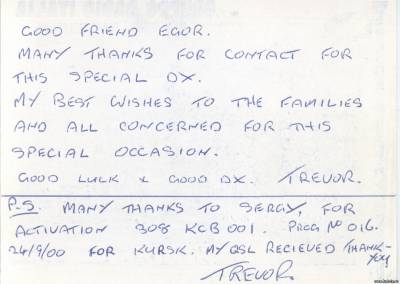 GOOD FRIEND EGOR.
MANY THANKS FOR CONTACT FOR
THIS SPECIAL DX.
MY BEST WISHES TO THE FAMILIES
AND ALL CONCERNED FOR THIS
SPECIAL OCCASION.
GOOD LUCK & GOOD DX. TREVOR.
P.S. MANY THANKS TO SERGY, FOR
ACTIVATION 308 KCB 001. PROG Nº 016.
24/9/00 FOR KURSK. MY QSL RECIEVED THANK-
YOU
TREVOR.